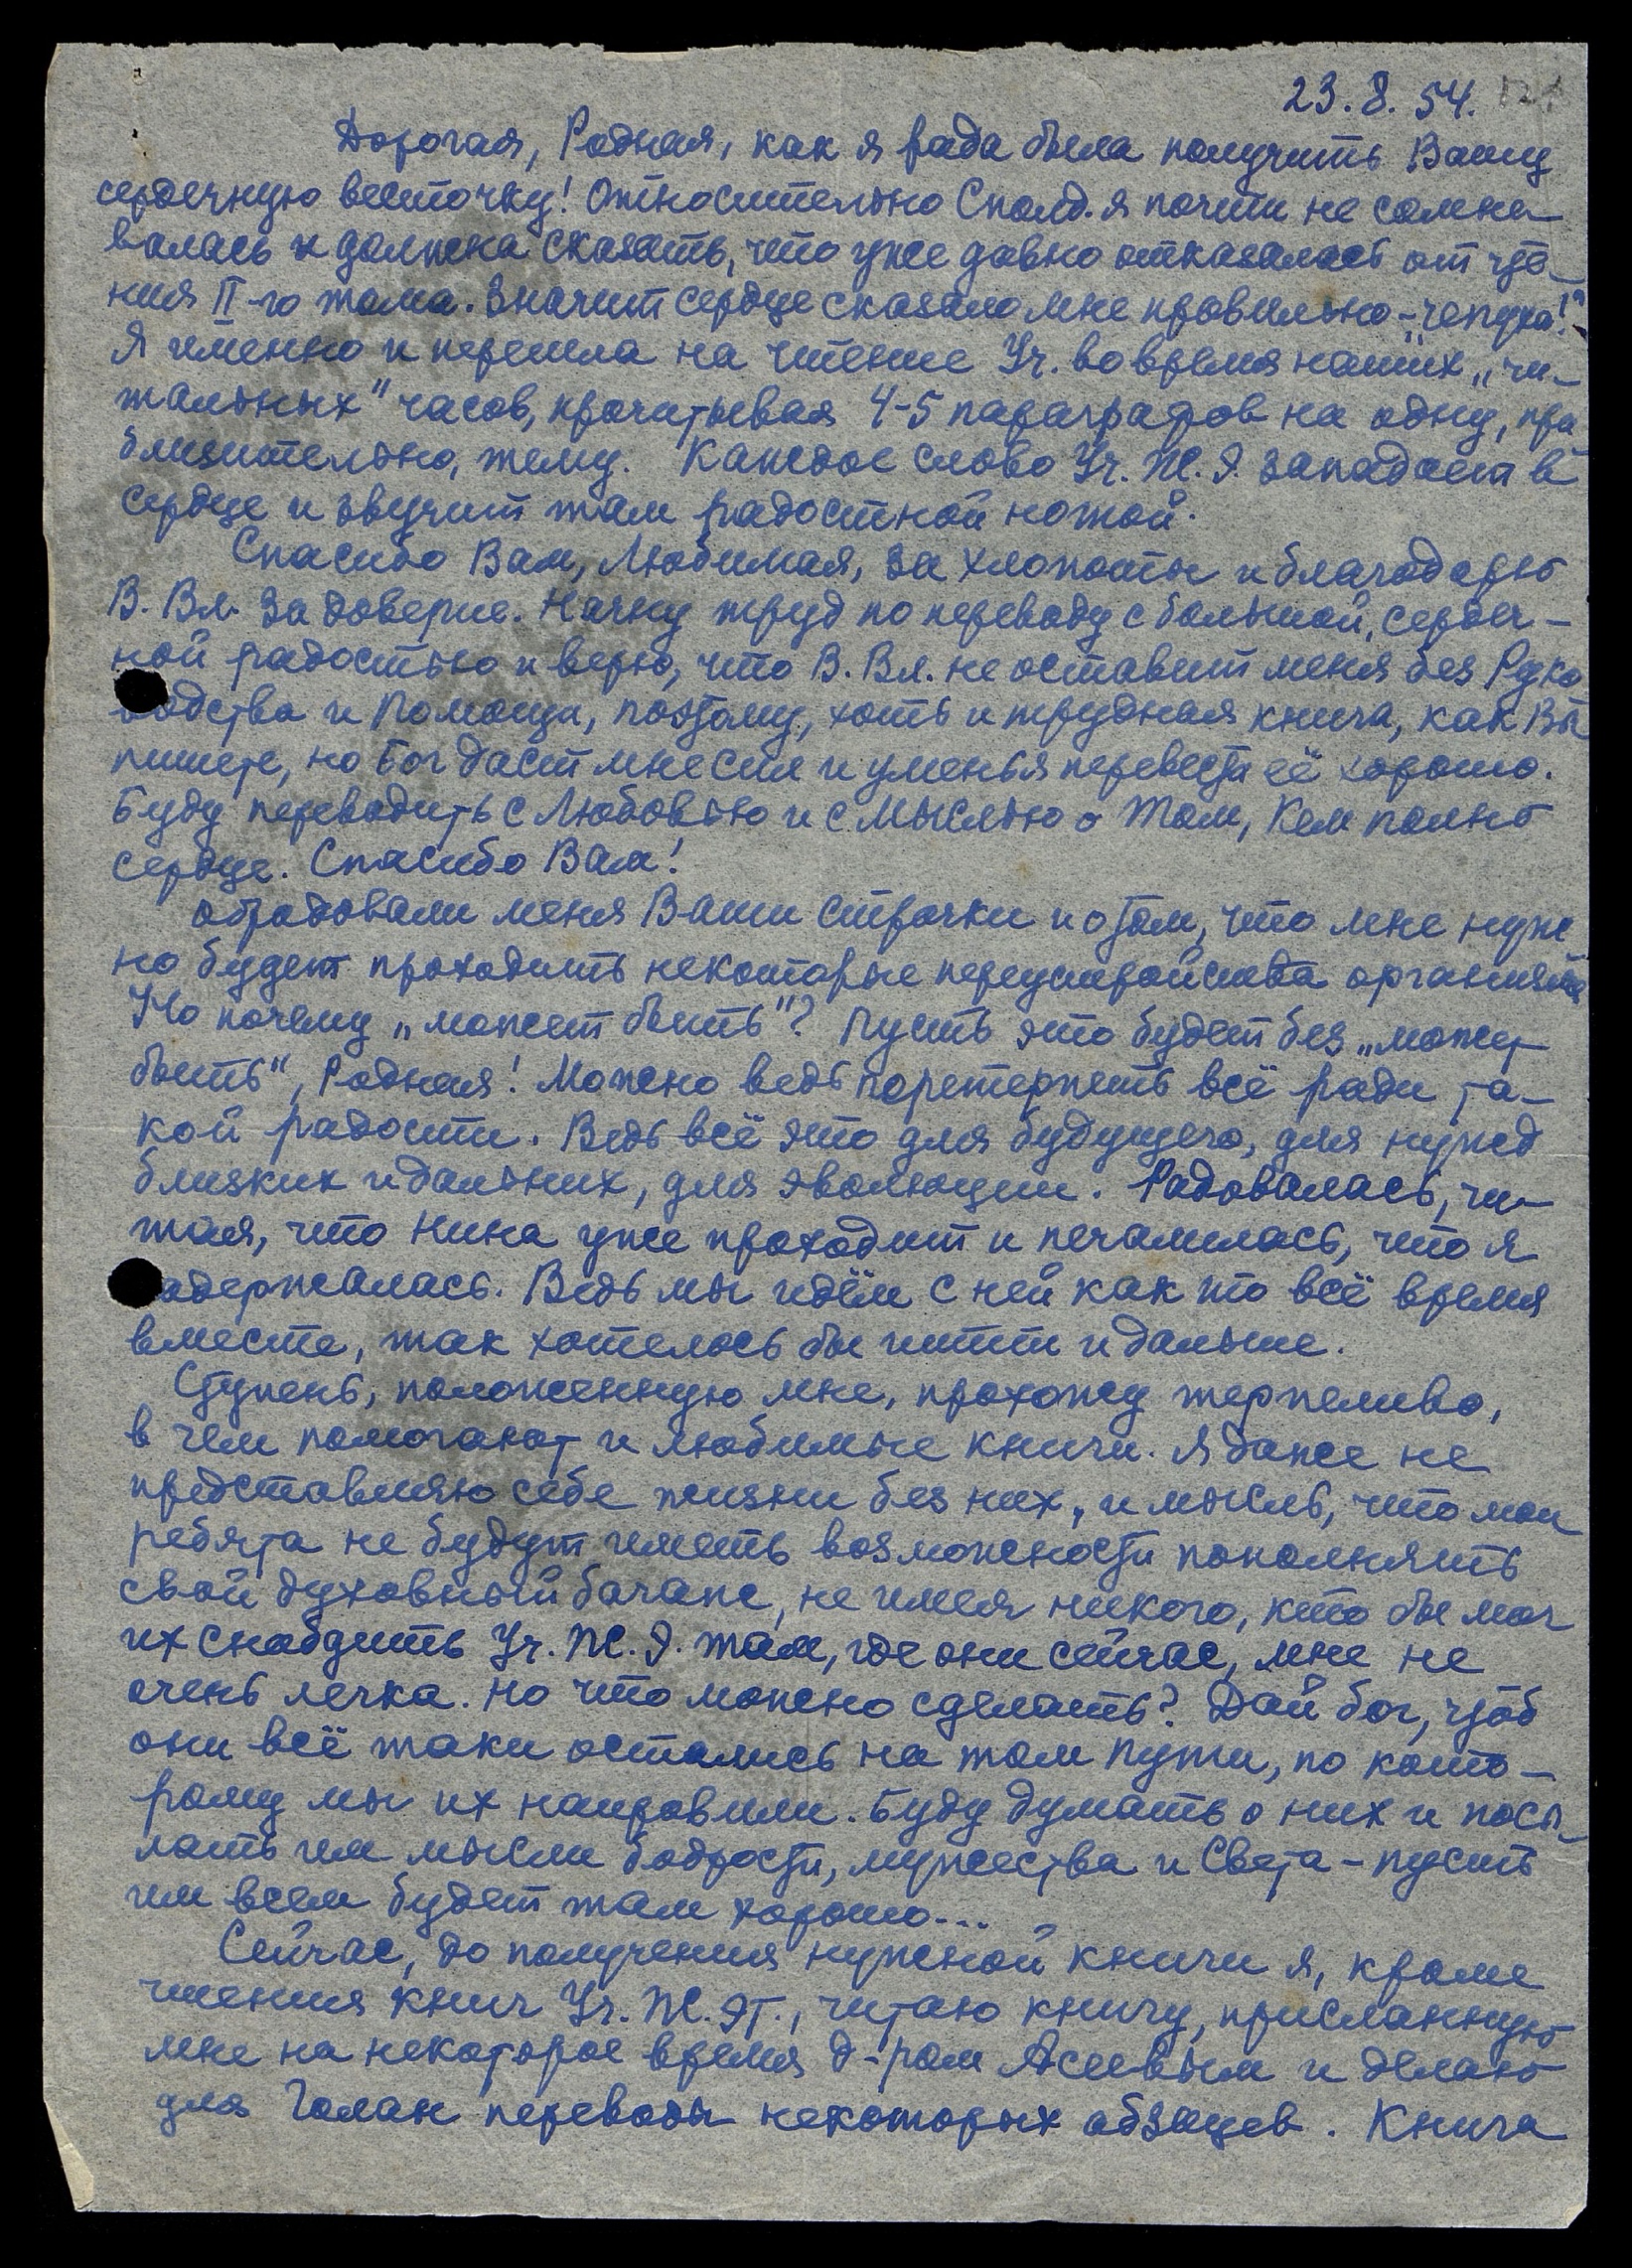 23.8.54.
Дорогая, Родная, как я рада была получить Вашу
сердечную весточку! Относительно Сполд. я почти не сомне-
валась и должна сказать, что уже давно отказалась от чте-
ния II-го тома. Значит сердце сказало мне правильно-„чепуха!"
Я именно и перешла на чтение Уч. во время наших „чи-
тальных" часов, прочитывая 4-5 параграфов на одну, при
близительно, тему. Каждое слово Уч. Ж.Э. западает в
сердце и звучит там радостной нотой.
Спасибо Вам, Любимая, за хлопоты и благодарю
В. Вл. за доверие. Начну труд по переводу с большой, сердеч-
ной радостью и верю, что В. Вл. не оставит меня без Руко
водства и Помощи, поэтому, хоть и трудная книга, как Вы
пишете, но Бог даст мне сил и уменья перевести её хорошо.
Буду переводить с Любовью и с Мыслью о Том, Кем полно
сердце. Спасибо Вам!
Обрадовали меня Ваши строчки и о том, что мне нуж
но будет проходить некоторые переустройства организма
Но почему „может быть"? Пусть это будет без „может
быть", Родная! Можно ведь перетерпеть всё ради та-
кой радости. Ведь всё это для будущего, для нужд
близких и дальних, для эволюции. Радовалась, чи-
тая, что Нина уже проходит и печалилась, что я
адержалась. Ведь мы идём с ней как то всё время
вместе, так хотелось бы итти и дальше.
Ступень, положенную мне, прохожу терпеливо,
в чем помогают и любимые книги. Я даже не
представляю себе жизни без них, и мысль, что мои
ребята не будут иметь возможности пополнять
свой духовный багаж, не имея никого, кто бы мог
их снабдить Уч. Ж.Э. там, где они сейчас, мне не
очень легка. Но что можно сделать? Дай бог, чтоб
они всё таки остались на том пути, по кото-
рому мы их направили. Буду думать о них и посы-
лать им мысли бодрости, мужества и Света - пусть
им всем будет там хорошо...
Сейчас, до получения нужной книги я, кроме
чтения книг Уч. Ж. Эт., читаю книгу, присланную
мне на некоторое время д-ром Асеевым и делаю
для Галан переводы некоторых абзацев. Книга